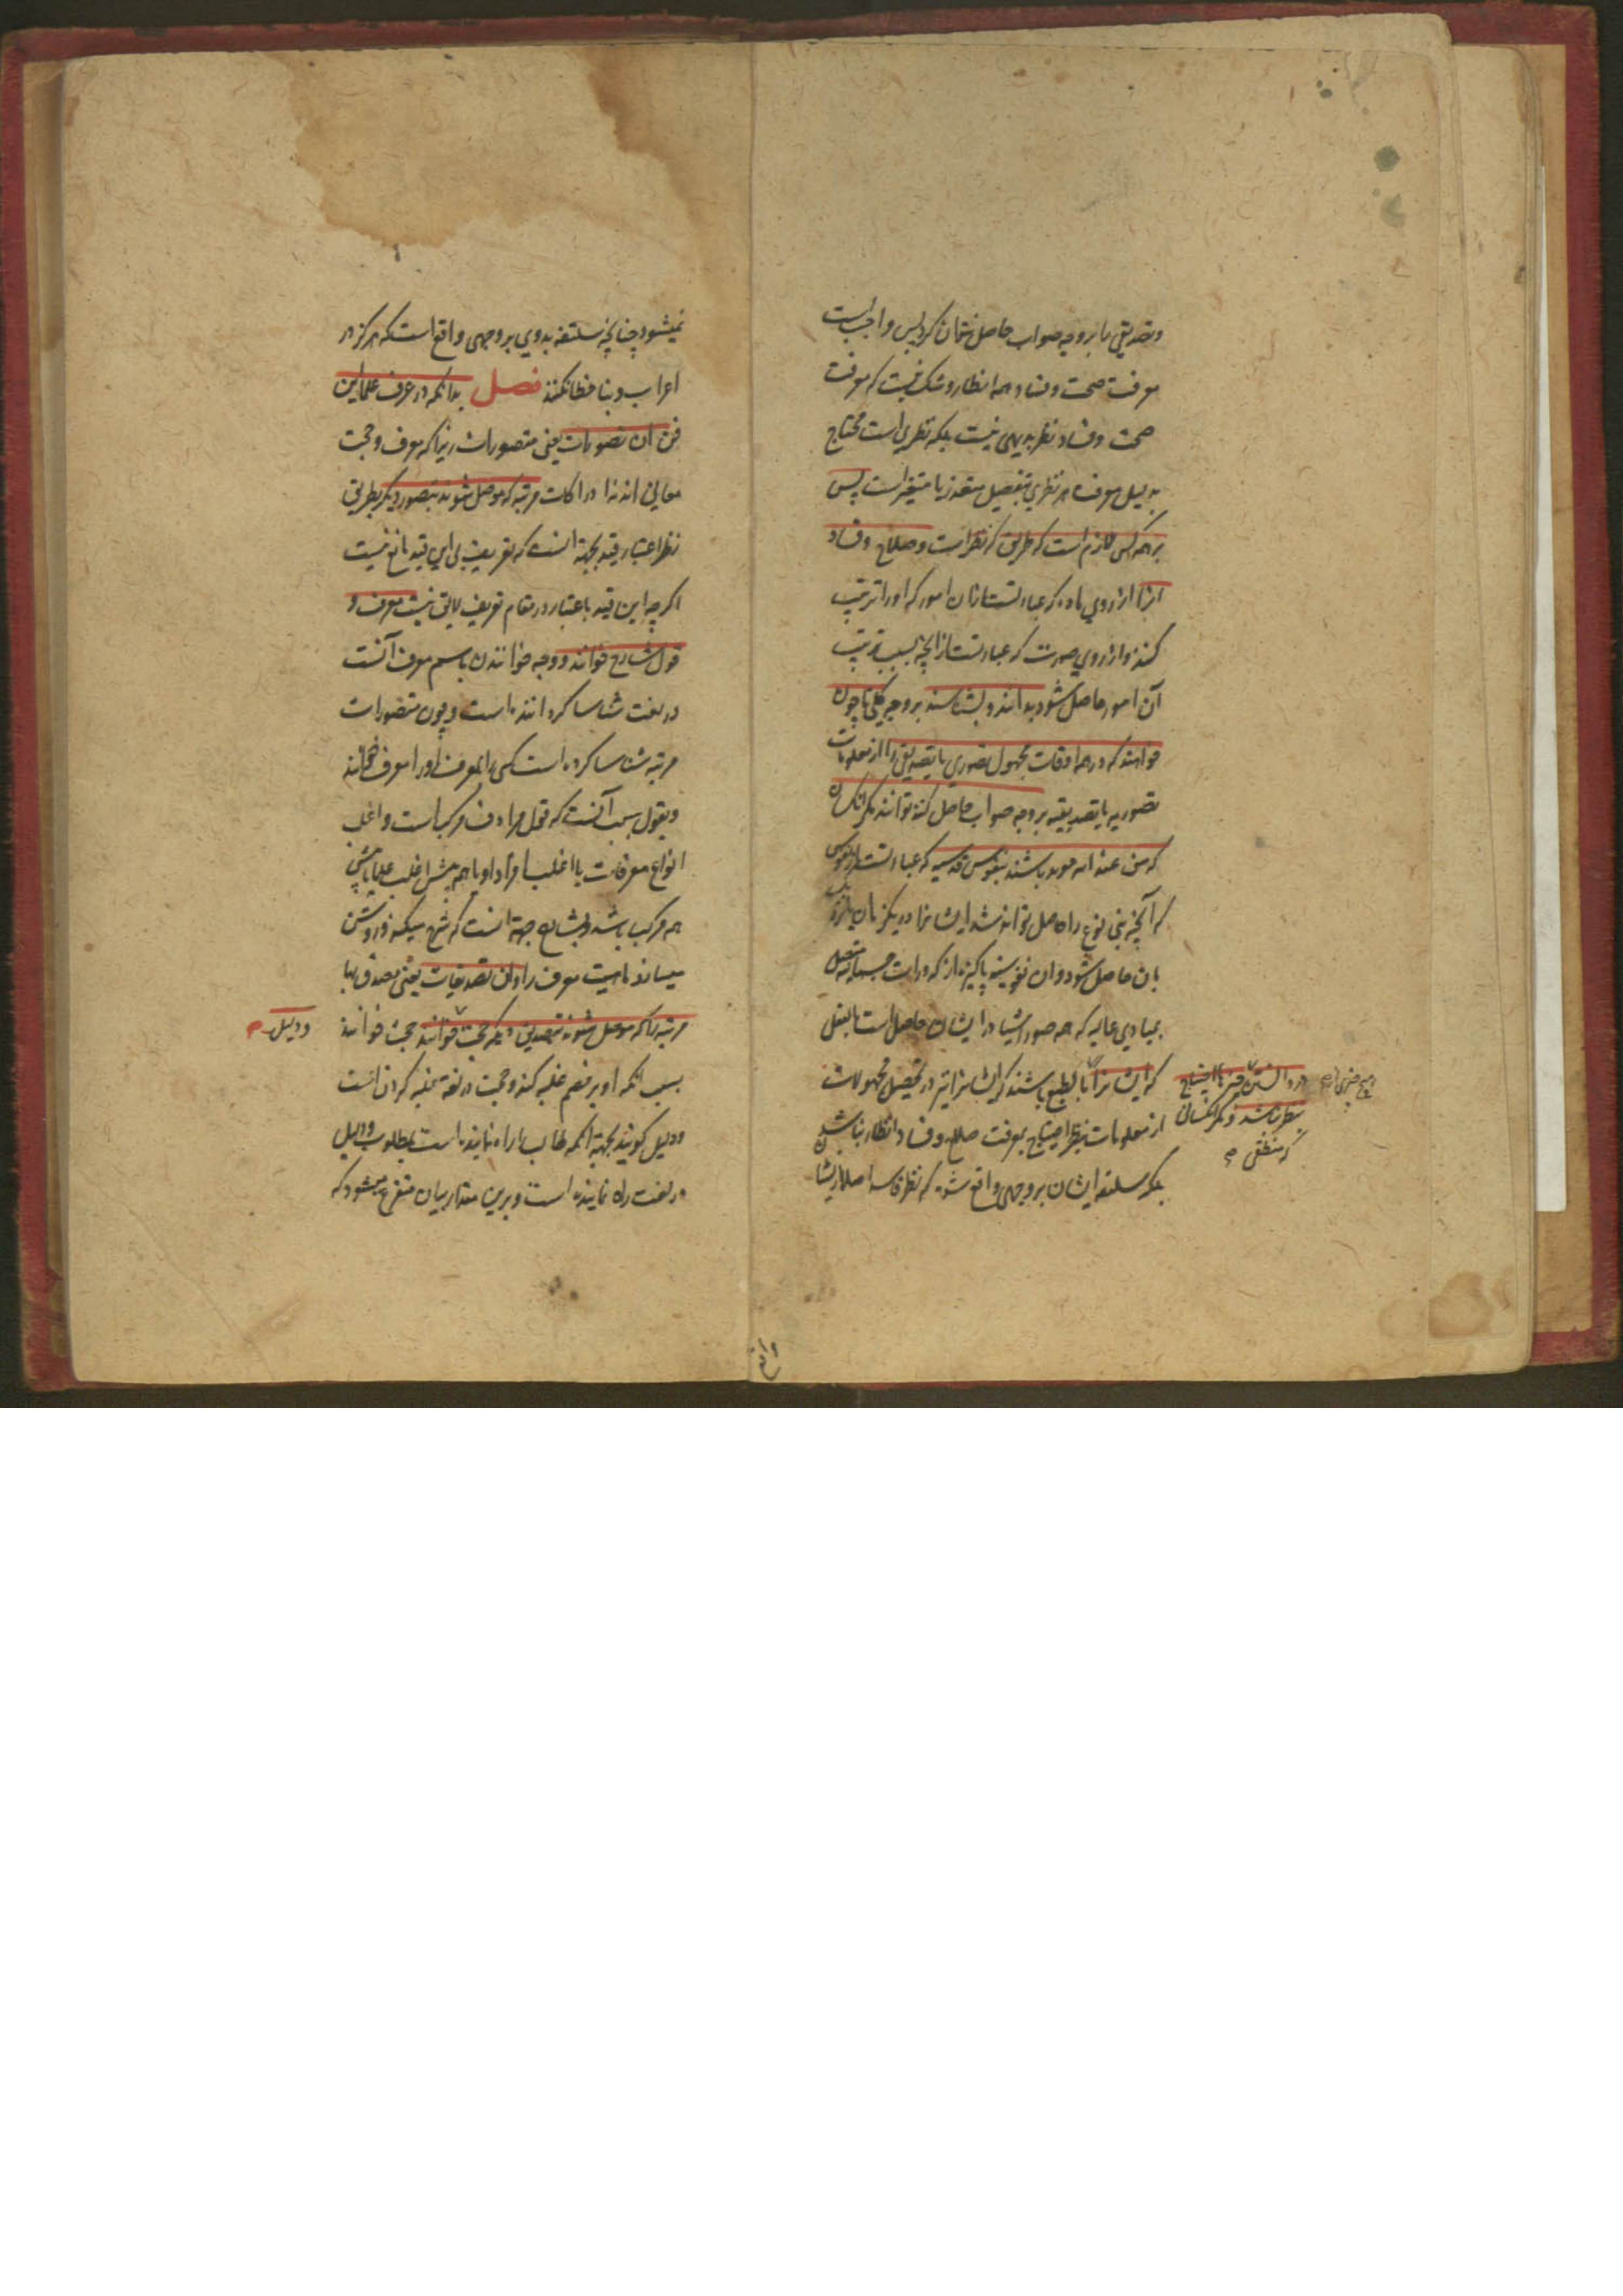 وتصدیقی را بر وجه صواب حاصل نتمان کرد پس واجبست
معرفت صحت وفساد همه انظار وشک نیست که معرفت
صحت وفساد نظر بدیهی نیست بلکه نظری است محتاج
بدلیل معرفه هر نظری بتفصیل متعذر یا متعسر است پس
بر همه کس لازم است که طریق که نظر است وصلاح وفساد
انرا از روی ماده که عبارتست ازان امور که اورا ترتیب
کنند واز روی صورت که عبارتست ازانچه بسبب ترتیب
آن امور حاصل شود بدانند وبشناسند بر وجه کلی تا چون
خواهند که در همه اوقات مجهول تصوری یا تصدیقی را از معلومات
تصوریه یا تصدیقیه بر وجه صواب حاصل کنند توانند مکر انکسان
که من عند الله موید باشند بنفوس قدسیه که عبارتست از نفوس
که آنچه بنی نوع را حاصل تواند شد ایشانرا در یکزمان
بان حاصل شود وان نفوس پاکیزه از کدورات جسمانیه متصل
بمبادی عالیه که همه صور اشیا در ایشان حاصل است بالفعل
که ایشانرا بالطبع باشند که ایشانرا نیز در تحصیل مجهولات
از معلومات بنظر احتیاج بمعرفت صلاح وفساد انظار نباشد
بلکه سلیقه ایشان بر وجهی واقع شود که نظر فاسد اصلا از ایشان
در دانستن چیزها احتیاج
بنظر نباشد ومکر انکسان
که منطقی
نمیشود چنانچه سلیقه بدوی بر وجهی واقع است که هرکز در
اعراب وبنا خطا نکنند فصل بدانکه در عرف علماء این
فن ان تصورات یعنی متصورات زیرا که معرف وحجت
معانی اند نه ادراکات مرتبه که موصل شوند بتصور دیکر بطریق
نظر اعتبار قید بجهة انست که تعریف بی این قید مانع نیست
اکرچه این قید باعتبار در مقام تعریف لایق نیست معرف و
قول شارح خوانند ووجه خواندن باسم معرف آنست
در لغت شناسا کرداننده است وچون متصورات
مرتبه شناسا کرده است کسی را لمعرف اورا معرف خوانند
وبقول بسبب آنست که قول مرادف مرکب است واغلب
انواع معرفات یا اغلب افراد او یا هم پیش اغلب علما یا پیش
همه مرکب باشد وبشارح جهة انست که شرح میکند وروشن
میسازد ماهیت معرف را وان تصدیقات یعنی مصدق بها
مرتبه را که موصل شوند بتصدیق دیکر حجت خوانند حجت خوانند
ودلیل
بسبب انکه او بر خصم غلبه کند وحجت در لغة غلبه کردن است
ودلیل کویند بجهة انکه طالب را راه نماینده است بمطلوب ودلیل
در لغت راه نماینده است وبرین مقدار بیان متفرع میشود که